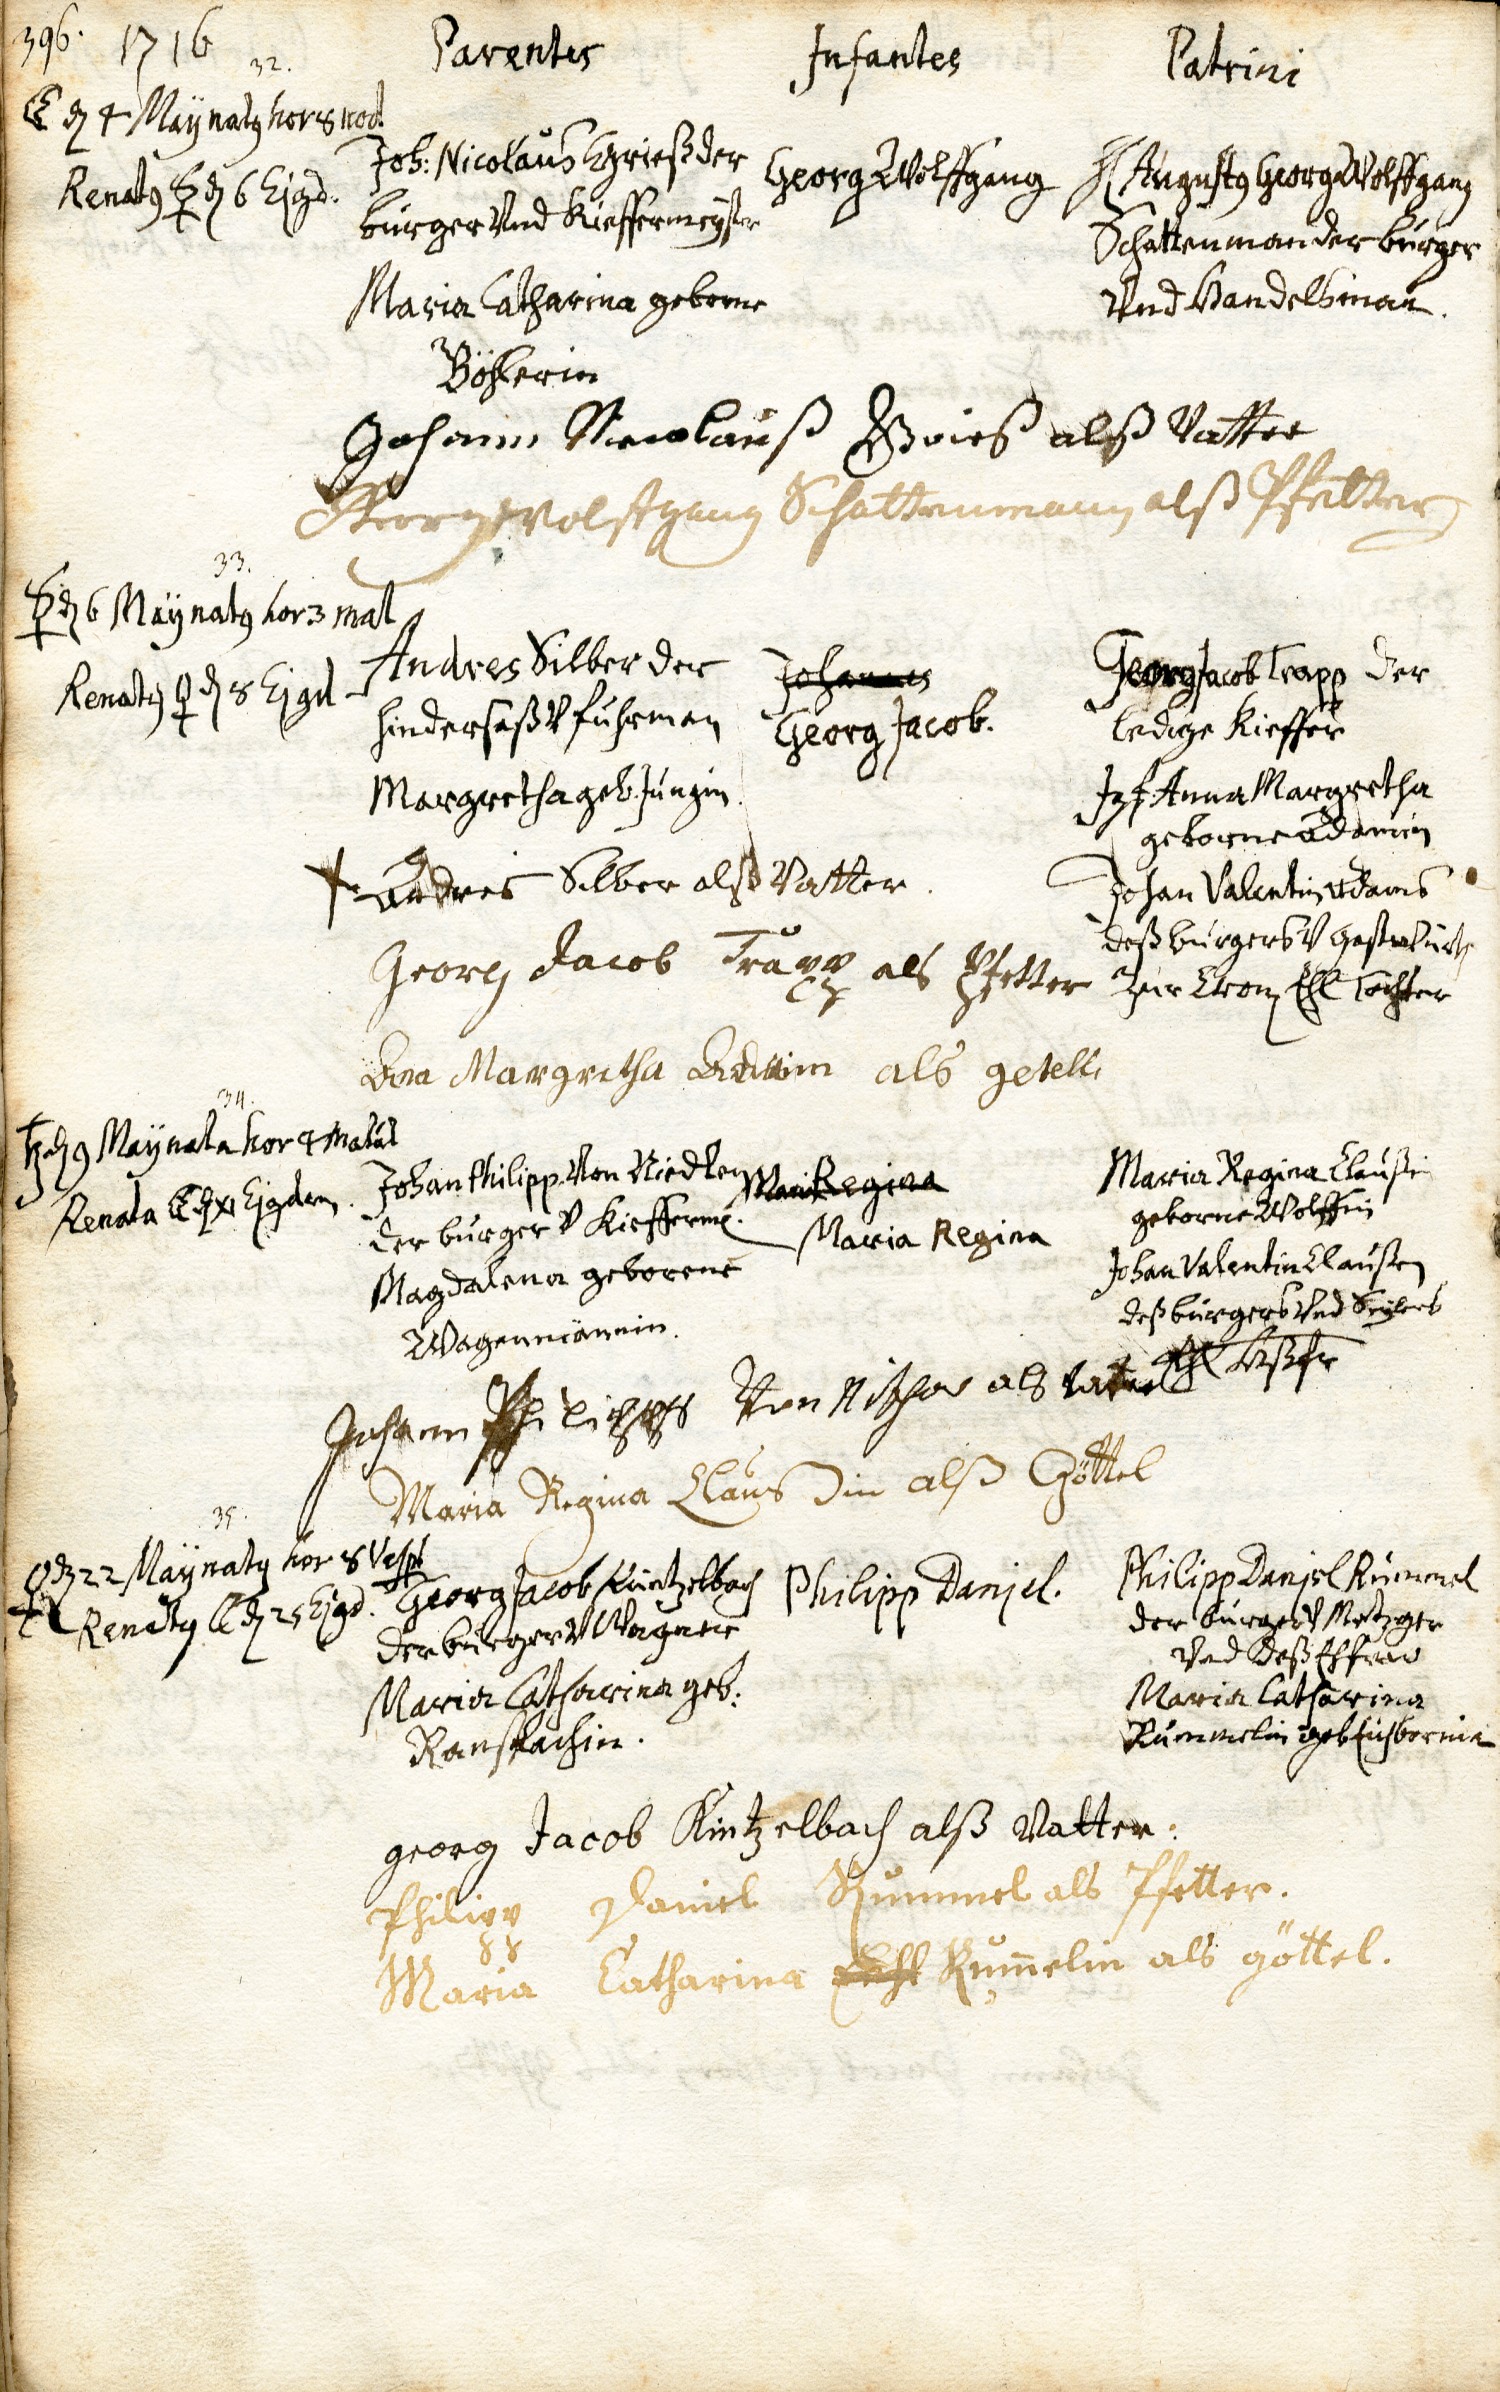 396. 1716 Parentes Infantes Patrini
32.
☾ dȷ 4 Maÿ natȝ hor 8 noct
Renatȝ ☿ dȷ 6 Ejȝd.
Joh: Nicolaus Grieß der
burger Vnd Kieffermeÿster
Maria Catharina geborne
Bößerin
Georg Wolffgang
H Augustȝ Georg Wolffgang
Schattenman der burger
Vnd Handelßman.
Johann Nicolauß Grieß alß Vatter
Georg wolffgang Schattenmann alß Pfetter
33.
☿ dȷ 6 Maÿ natȝ hor 3 mat
Renatȝ ♀ dȷ 8 Ejȝd
Andres Silber der
hindersaß V fuhrman
Margretha geb. Jungin.
Johannes
Georg Jacob.
Georg Jacob Trapp der
ledige Kieffer
Jgf Anna Margretha
geborne Adamin
Johan Valentin Adams
deß burgers V Gastwürth
Zur Cron Ehl Tochter
Andres Silber alß Vatter.
Georg Jacob Trapp als Pfetter
Margretha Adamin als getell
34.
♄ dȷ 9 Maÿ nata hor 4 matut
Renata ☾ dȷ XI Ejȝdem.
Johan Philipp Von Niedten
der burger V Kiefferm.
Magdalena geborene
Wagenmännin.
Mari Regina
Maria Regina
Maria Regina Claußin
geborne Wolffin
Johan Valentin Claußen
deß burgers Vnd Seÿlers
Ehl Haßfr
Johann Philipps Von als vatter
Maria Regina Claussin alß Göttel
35.
♀ dȷ 22 Maÿ natȝ hor 8 Vesp
Renatȝ ☾ dȷ 25 Ejȝd.
Georg Jacob Küntzelbach
der burger V Wagner
Maria Catharina geb:
Ranspachin.
Philipp Danjel.
Philipp Danjel Rümmel
der burger V Metzger
Vnd deß Ehfraw
Maria Catharina
Rümmelin geb Eichbornin
georg Jacob Kintzelbach alß Vatter:
Philipp Daniel Rummel als Pfetter.
Maria Catharina Rum̄elin als göttel.